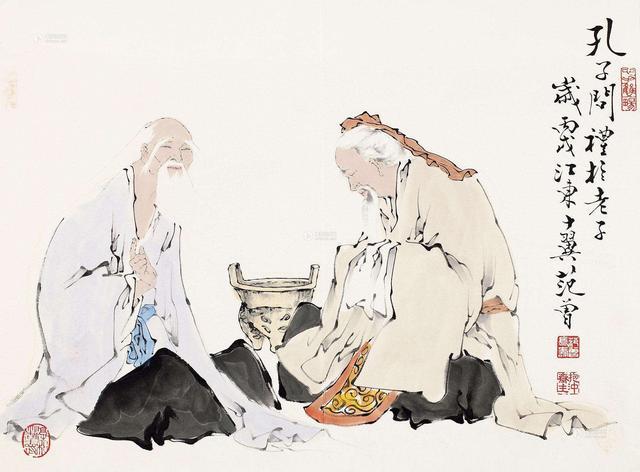 孔子問禮於老子
歲丙戌江東十翼范曾